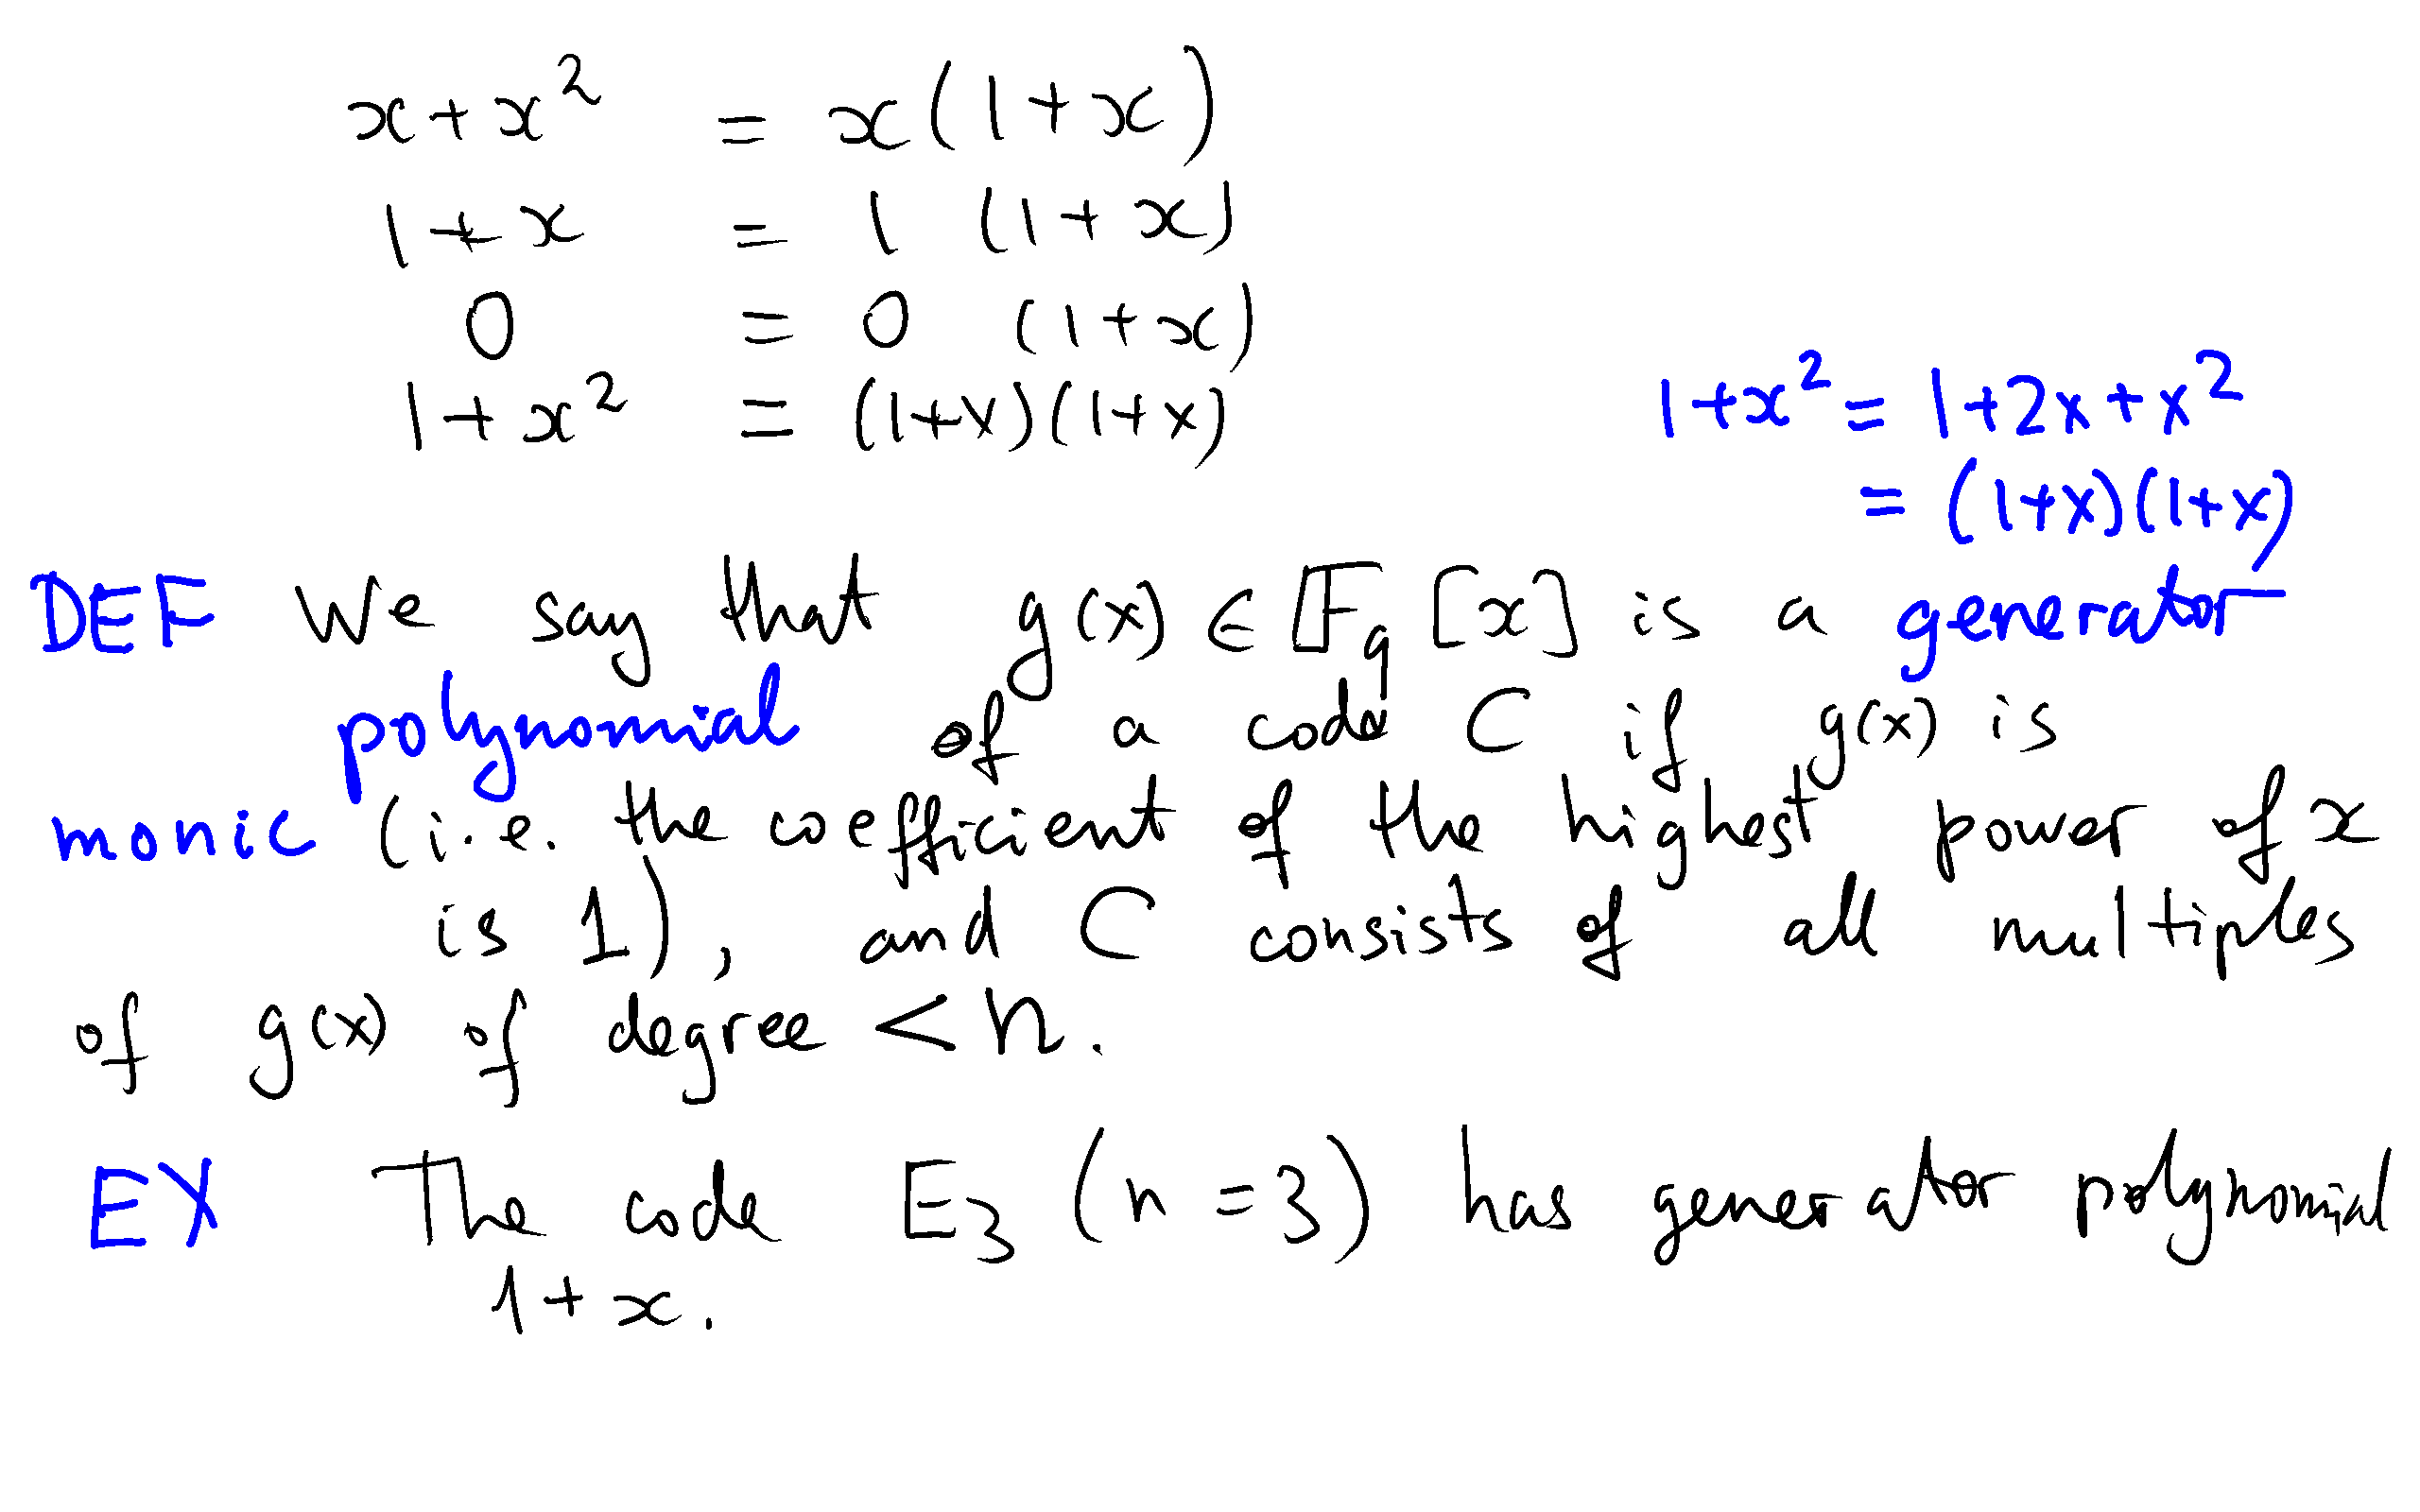 x+x² = x(1+x)
1+x = 1 (1+x)
0 = 0 (1+x)
1+x² = (1+x)(1+x)
1+x² = 1+2x+x²
= (1+x)(1+x)
DEF We say that g(x) ∈ 𝔽q [x] is a generator
polynomial of a code C if g(x) is
monic (i.e. the coefficient of the highest power of x
is 1), and C consists of all multiples
of g(x) of degree < n.
EX The code E₃ (n=3) has generator polynomial
1+x.